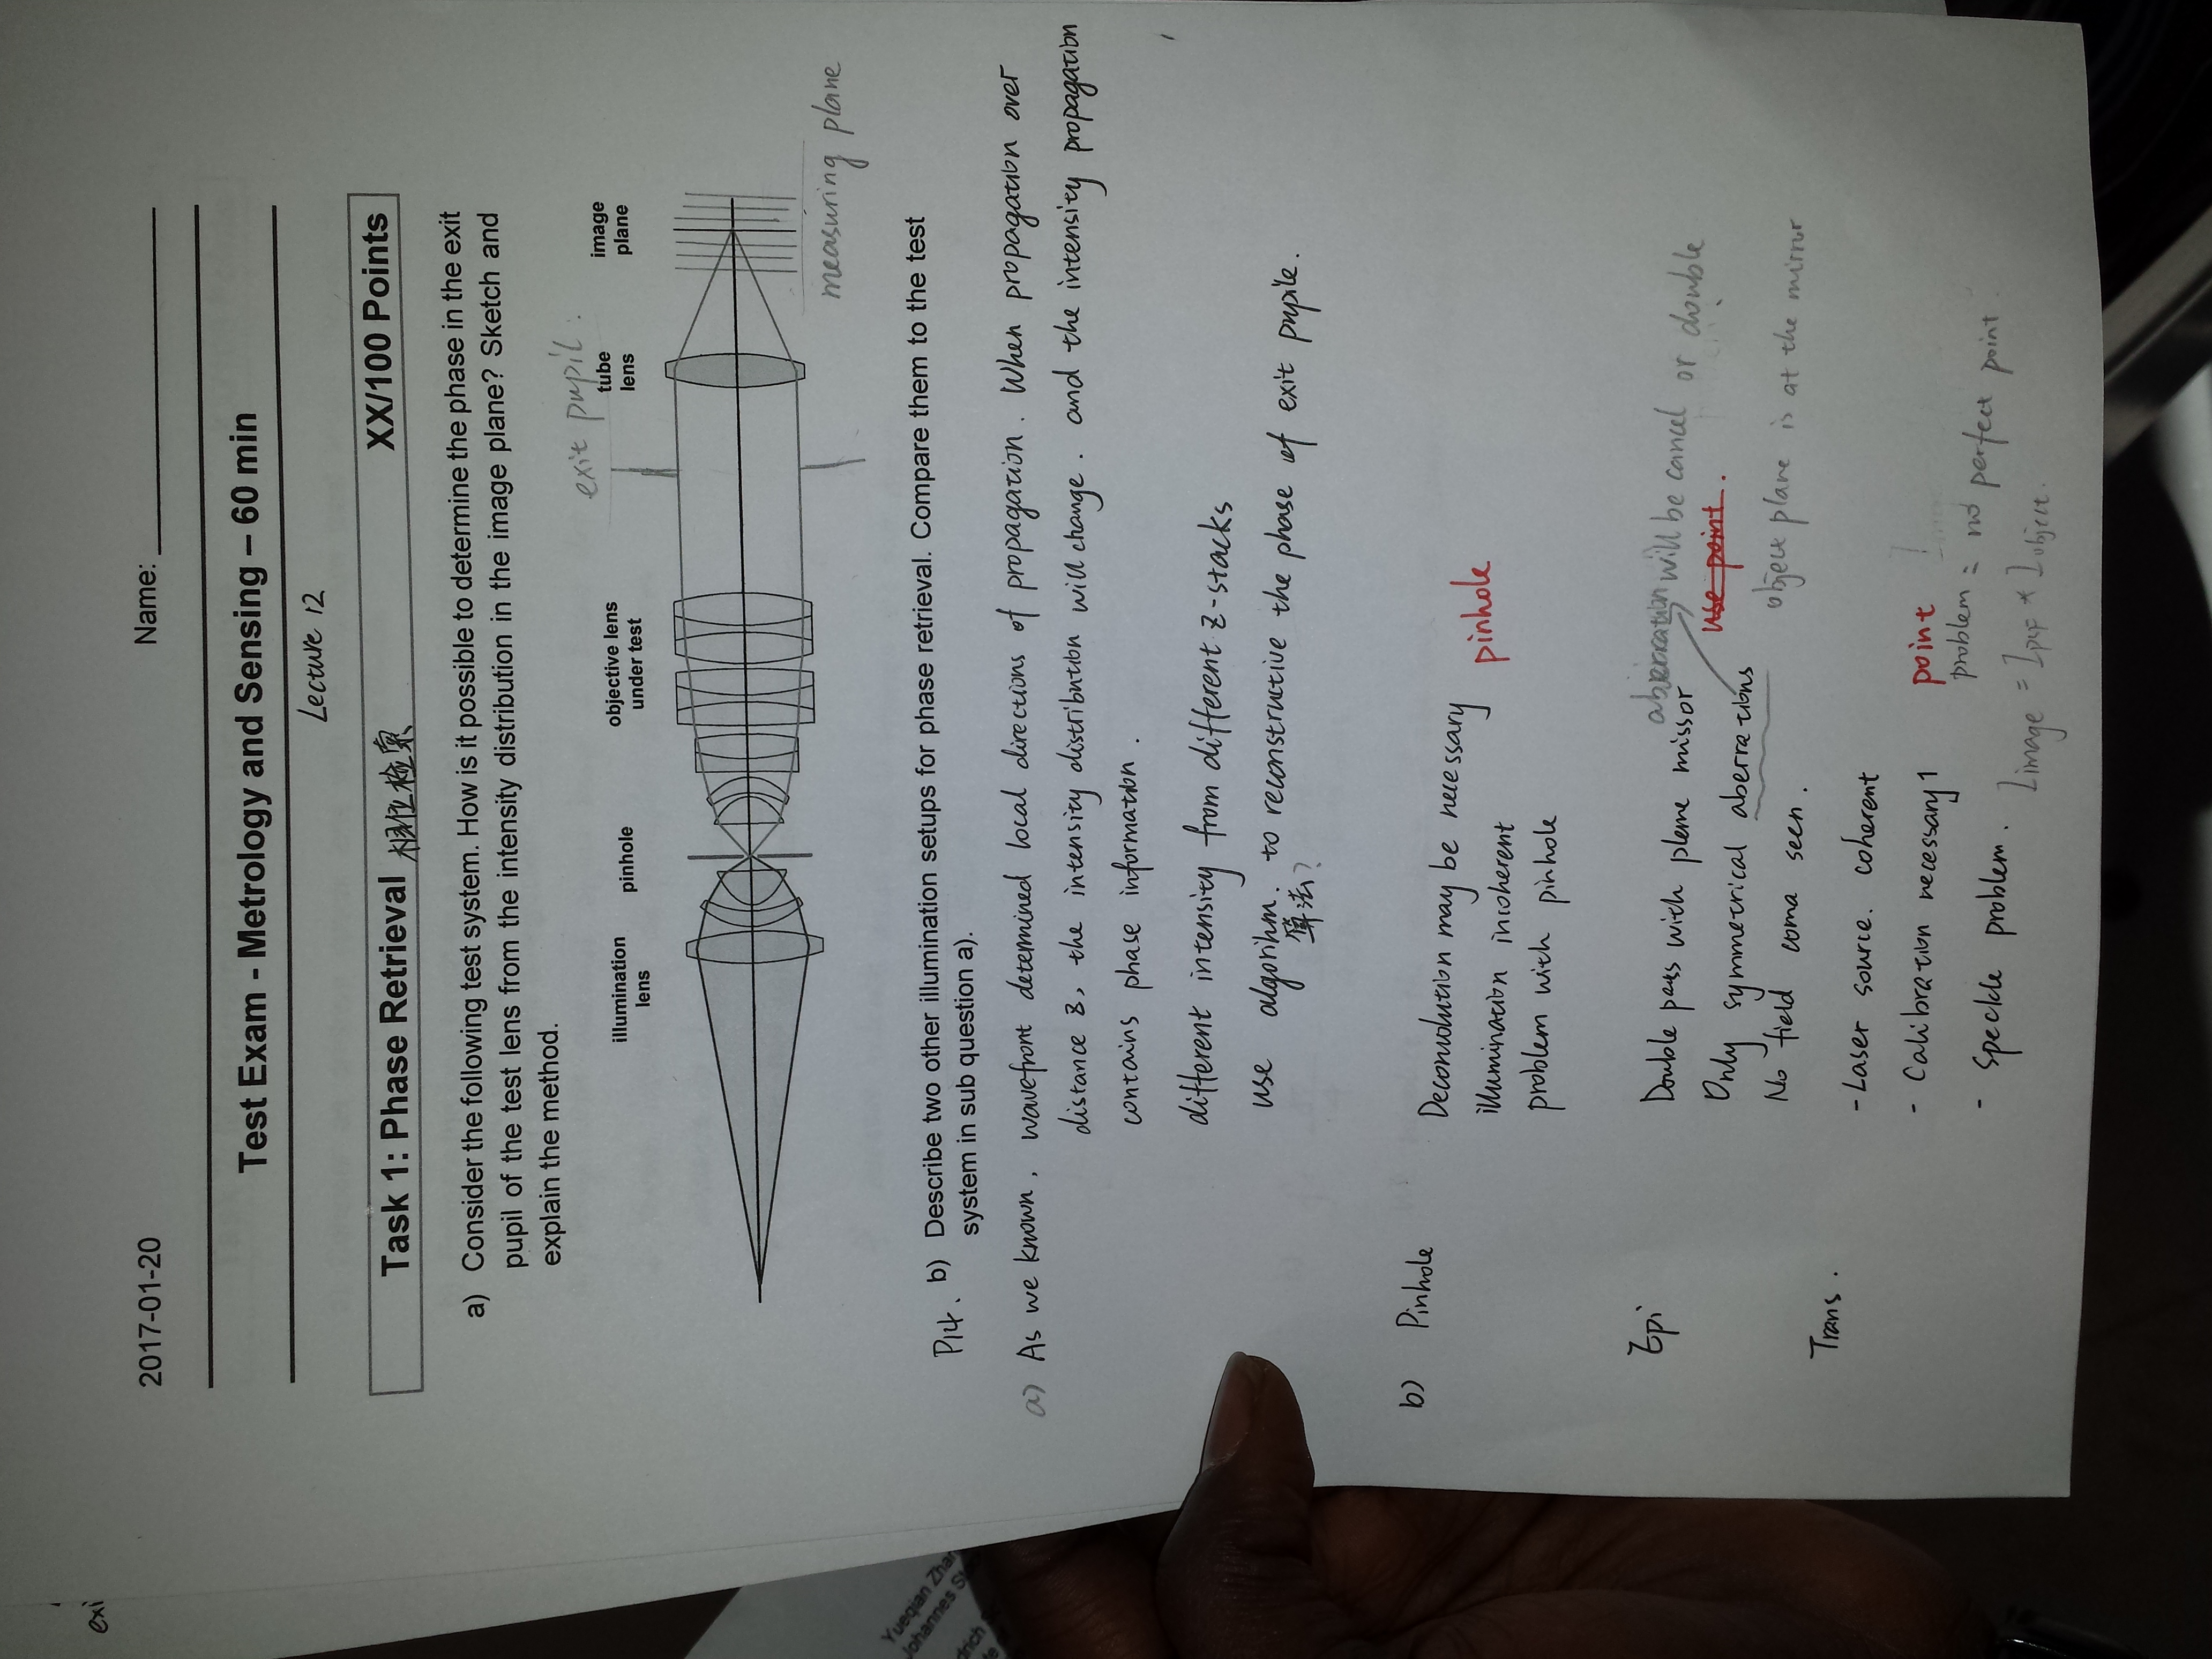 exi
2017-01-20
Name:
Test Exam - Metrology and Sensing – 60 min
Lecture 12
Task 1: Phase Retrieval 相位检索 XX/100 Points
a) Consider the following test system. How is it possible to determine the phase in the exit
pupil of the test lens from the intensity distribution in the image plane? Sketch and
explain the method.
exit pupil.
illumination
lens
pinhole
objective lens
under test
tube
lens
image
plane
measuring plane
P14. b) Describe two other illumination setups for phase retrieval. Compare them to the test
system in sub question a).
a) As we known, wavefront determined local directions of propagation. When propagation over
distance z, the intensity distribution will change. and the intensity propagation
contains phase information.
different intensity from different z-stacks
use algorihm. to reconstructive the phase of exit pupile.
算法?
b) Pinhole
Deconvolution may be necessary
illumination incoherent
problem with pinhole
pinhole
Epi
Double pass with plane missor
aberration will be cancel or double
Only symmetrical aberrations
use point.
No field coma seen.
object plane is at the mirror
Trans.
- Laser source. coherent
- Calibration necessary 1
point
problem = no perfect point
- Speckle problem.
Iimage = Ipsf * Iobject.
Yueqian Zhan
Johannes St
drich
te